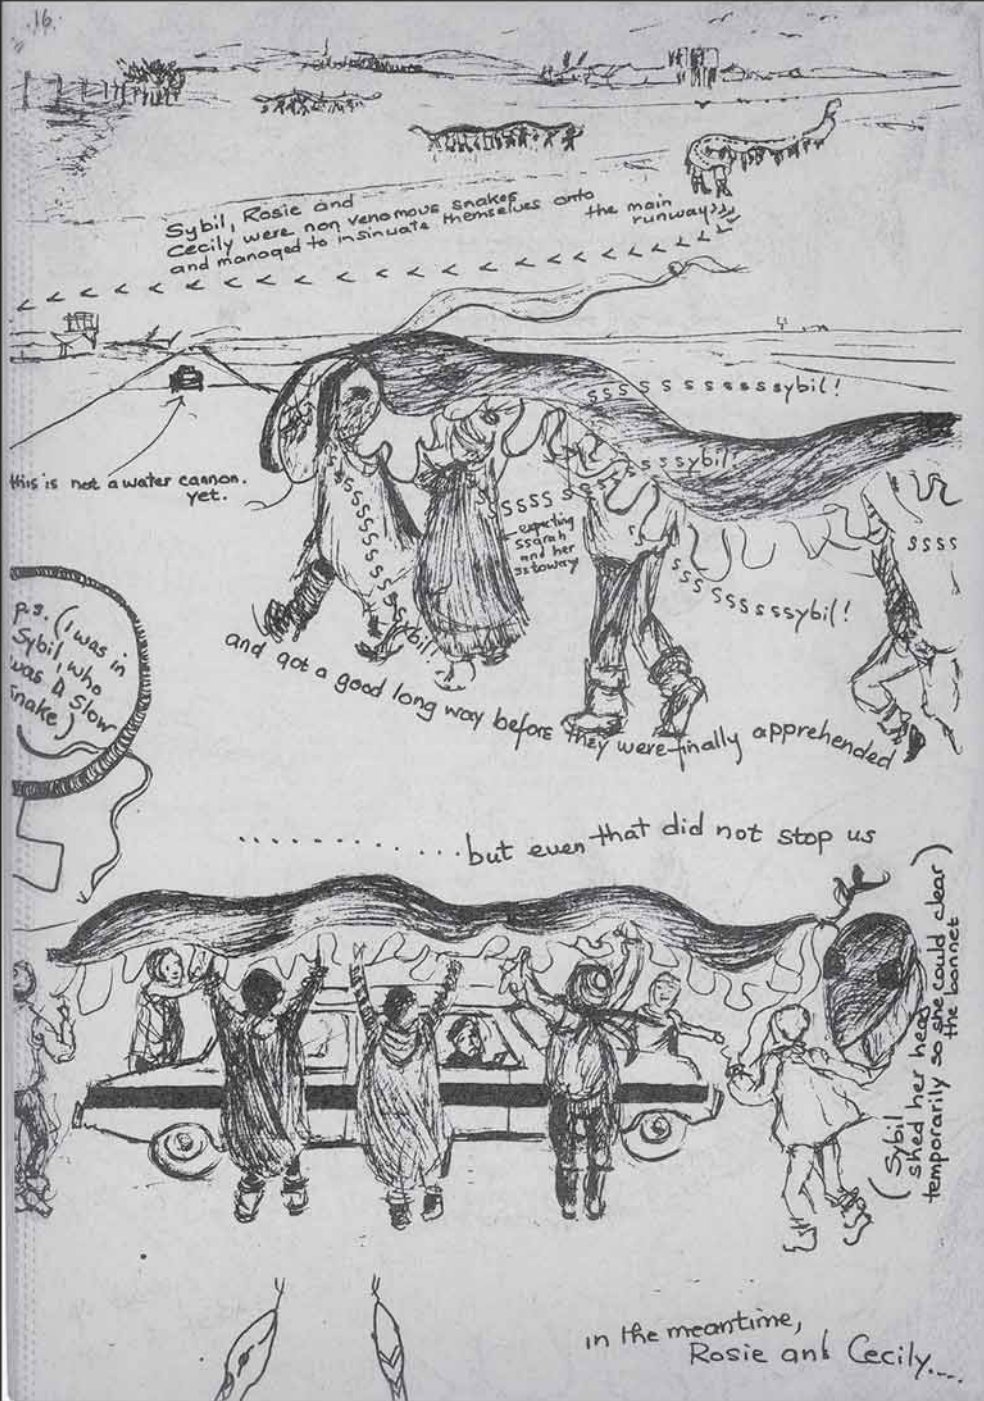 .16.
Sybil, Rosie and
Cecily were non venomous snakes
and managed to insinuate themselves onto
the main
runway
sss s s s s s s sssybil!
this is not a water cannon.
yet.
s sssybil!
ssss s
expecting
ssarah
and her
sstoway
ssss
sss ssssssybil!
sybil!
p.s. (I was in
Sybil, who
was A Slow
Snake)
and got a good long way before they were finally apprehended
............. but even that did not stop us
(Sybil
shed her head
temporarily so she could clear
the bonnet)
in the meantime,
Rosie and Cecily....